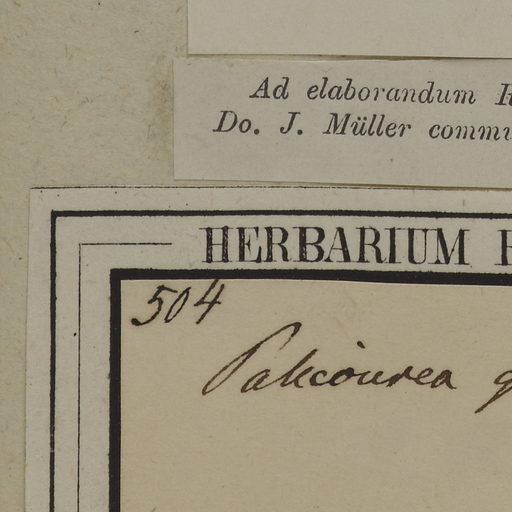 Ad elaborandum
Do. J. Müller
HERBARIUM
504
Palicourea